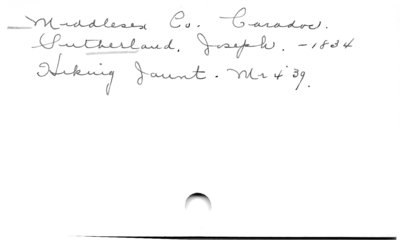 Middlesex Co. Caradoc.
Sutherland, Joseph. - 1834
Hiking Jaunt. Mr 4 '39.